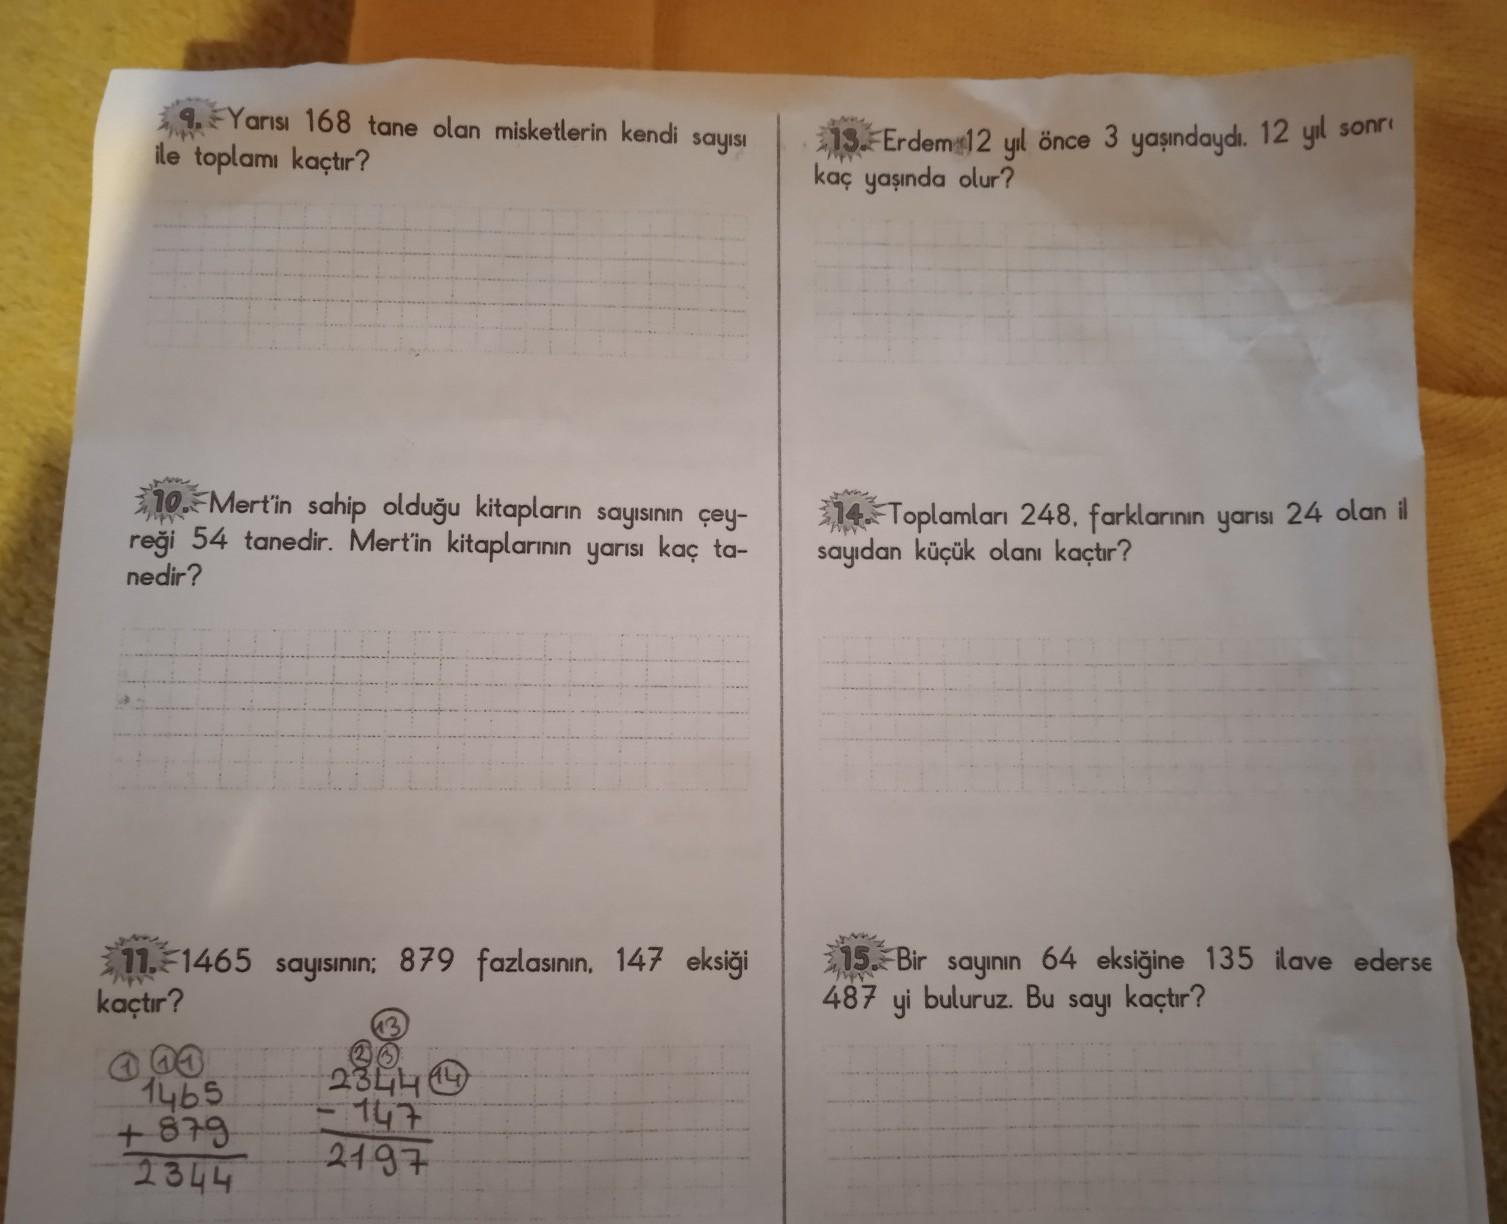 9. Yarısı 168 tane olan misketlerin kendi sayısı
ile toplamı kaçtır?
10. Mert'in sahip olduğu kitapların sayısının çey-
reği 54 tanedir. Mert'in kitaplarının yarısı kaç ta-
nedir?
11. 1465 sayısının; 879 fazlasının, 147 eksiği
kaçtır?
1 1 1
1465
+ 879
2344
13
2 3
2344 14
- 147
2197
13. Erdem 12 yıl önce 3 yaşındaydı. 12 yıl
kaç yaşında olur?
14. Toplamları 248, farklarının yarısı 24 olan
sayıdan küçük olanı kaçtır?
15. Bir sayının 64 eksiğine 135 ilave ederse
487 yi buluruz. Bu sayı kaçtır?